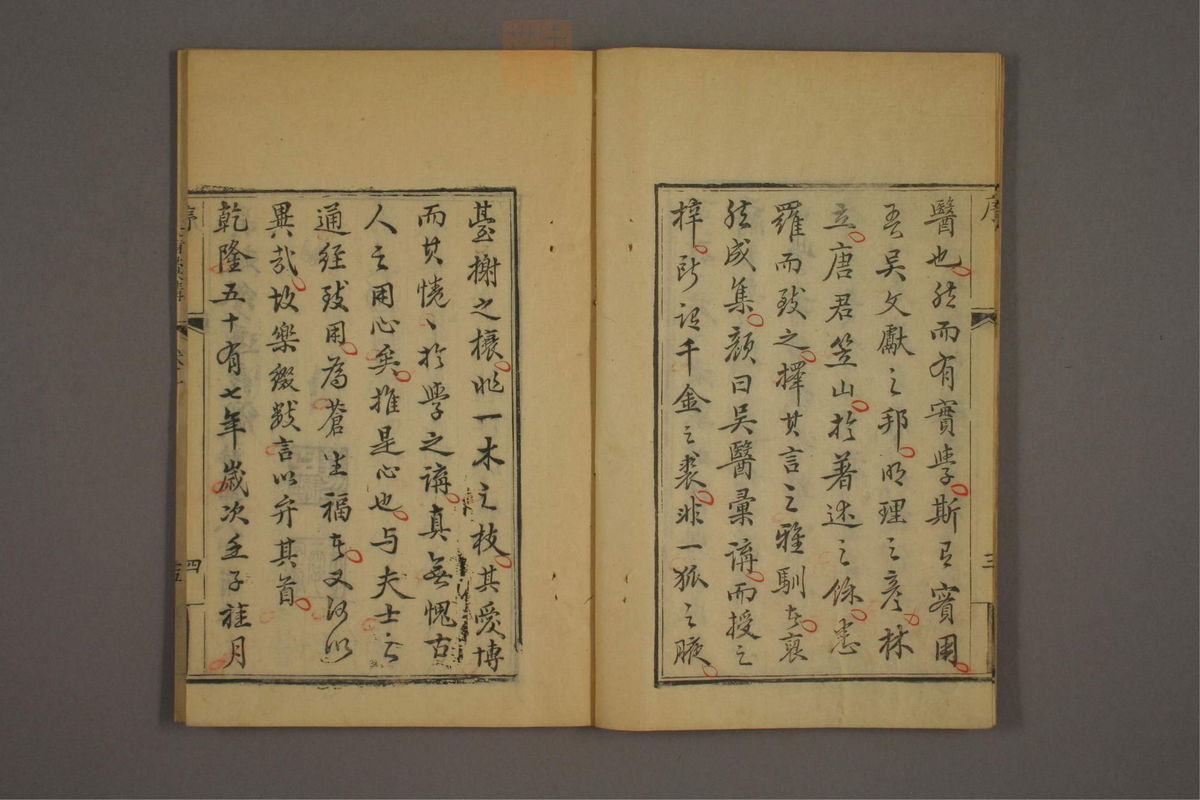 醫也然而有實學斯有實用
吾吳文獻之邦明理之彥林
立唐君笠山於著述之餘悉
羅而致之擇其言之雅馴者裒
然成集顏曰吳醫彙講而授之
梓所謂千金之裘非一狐之腋
臺榭之榱非一木之枝其愛博
而其惓〻於學之講真無愧古
人之用心矣推是心也与夫士之
通經致用為蒼生福者又何以
異哉故樂綴數言以弁其首
乾隆五十有七年歲次壬子桂月
序
三
序
四